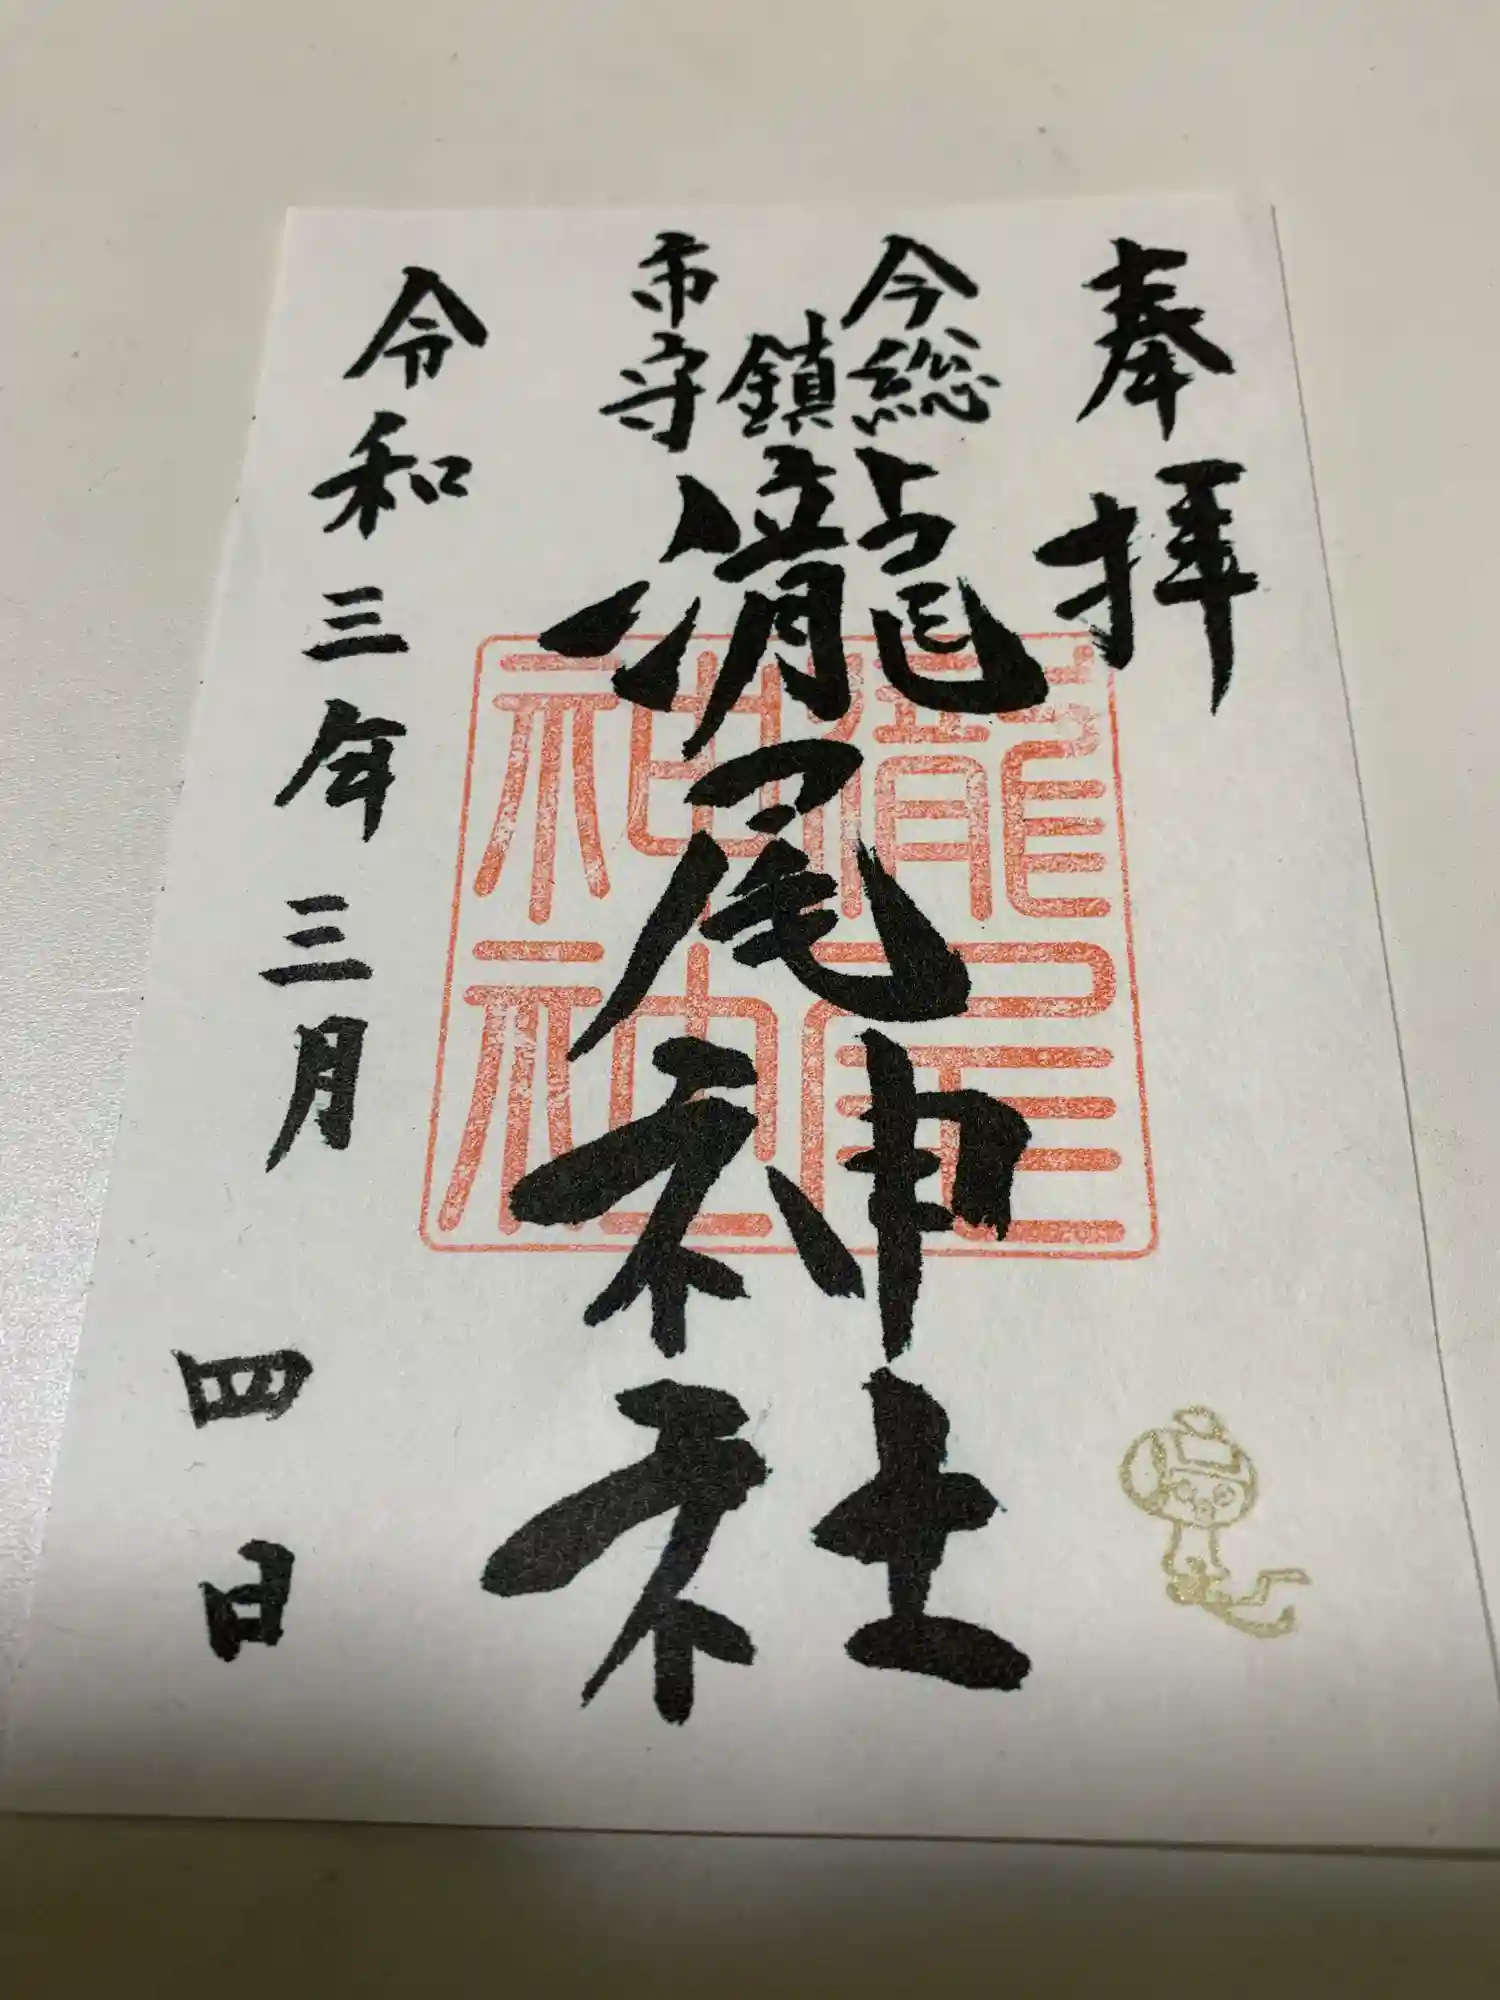 奉拝
今市
総鎮守
瀧尾神社
瀧尾神社
令和三年三月四日